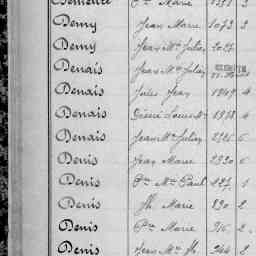 Pre Marie 1391 2
Demy Jean Marie 1073 2
Demy Jean Mie Julien 2027
Denais Jean Mie Julien
Denais Jules Jean 1849 4
Denais Pierre Louis 1838 4
Denais Jean Mie Julien 2326 5
Denis Jean Marie 2330 6
Denis Pre Mie Paul 127 1
Denis Jh. Marie 290 2
Denis Pre Marie 316 2
Denis Jean Mie Jh. 344 2